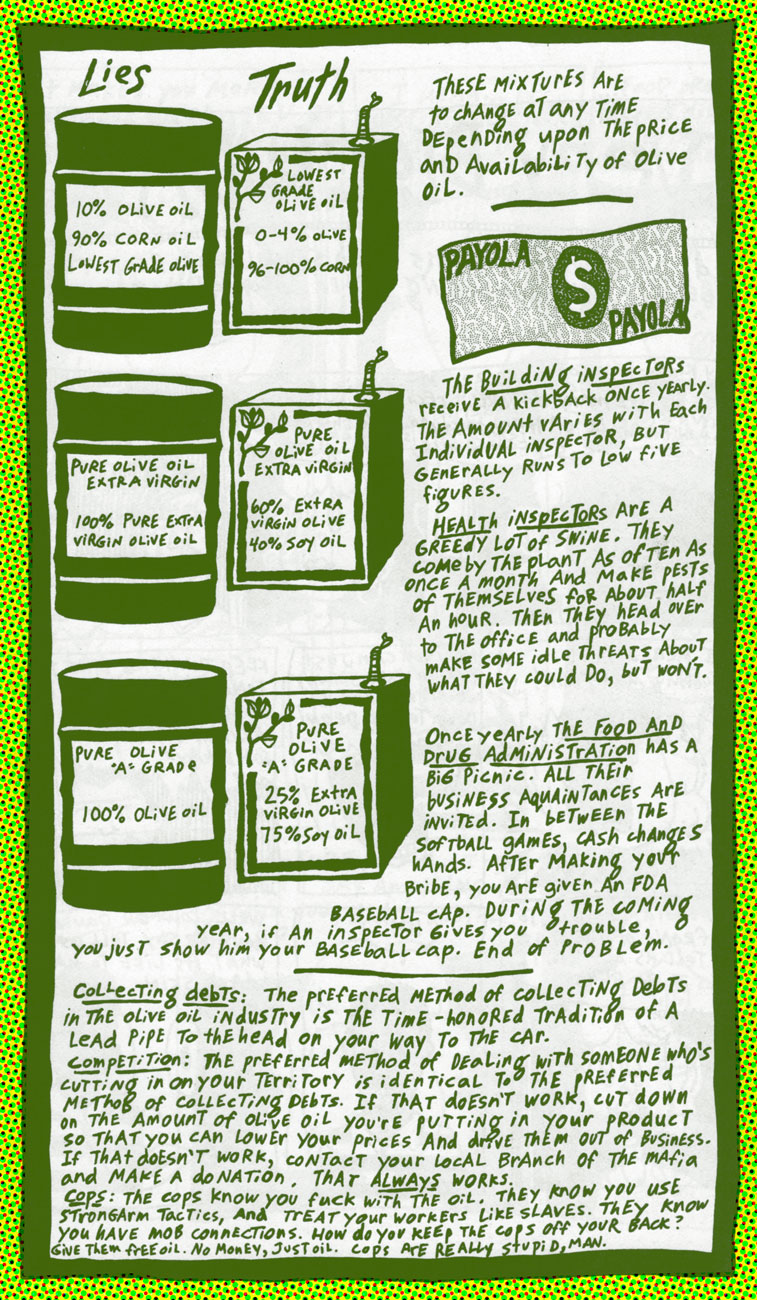 Lies
Truth
10% OLIVE OIL
90% CORN OIL
LOWEST GRADE OLIVE
LOWEST
GRADE
OLIVE OIL
0-4% OLIVE
96-100% CORN
PURE OLIVE OIL
EXTRA VIRGIN
100% PURE EXTRA
VIRGIN OLIVE OIL
PURE
OLIVE OIL
EXTRA VIRGIN
60% EXTRA
VIRGIN OLIVE
40% SOY OIL
PURE OLIVE
"A" GRADE
100% OLIVE OIL
PURE
OLIVE
"A" GRADE
25% EXTRA
VIRGIN OLIVE
75% SOY OIL
THESE MIXTURES ARE
to CHANGE AT ANY TIME
DEPENDING upon THE PRICE
AND AVAILABILITY of OLIVE
OIL.
PAYOLA
$
PAYOLA
THE BUILDING INSPECTORS
RECEIVE A KICKBACK ONCE YEARLY.
THE AMOUNT VARIES WITH EACH
INDIVIDUAL INSPECTOR, BUT
GENERALLY RUNS TO LOW FIVE
FIGURES.
HEALTH INSPECTORS ARE A
GREEDY LOT OF SWINE. THEY
COME BY THE PLANT AS OFTEN AS
ONCE A MONTH AND MAKE PESTS
OF THEMSELVES FOR ABOUT HALF
AN HOUR. THEN THEY HEAD OVER
to THE OFFICE AND PROBABLY
MAKE SOME IDLE THREATS ABOUT
WHAT THEY COULD DO, BUT WON'T.
ONCE YEARLY THE FOOD AND
DRUG ADMINISTRATION HAS A
BIG PICNIC. ALL THEIR
BUSINESS AQUAINTANCES ARE
INVITED. IN BETWEEN THE
SOFTBALL GAMES, CASH CHANGES
HANDS. AFTER MAKING YOUR
BRIBE, YOU ARE GIVEN AN FDA
BASEBALL CAP. DURING THE COMING
YEAR, IF AN INSPECTOR GIVES YOU TROUBLE,
YOU JUST SHOW HIM YOUR BASEBALL CAP. END OF PROBLEM.
COLLECTING DEBTS: THE PREFERRED METHOD OF COLLECTING DEBTS
IN THE OLIVE OIL INDUSTRY IS THE TIME-HONORED TRADITION OF A
LEAD PIPE TO THE HEAD ON YOUR WAY TO THE CAR.
COMPETITION: THE PREFERRED METHOD OF DEALING WITH SOMEONE WHO'S
CUTTING IN ON YOUR TERRITORY IS IDENTICAL TO THE PREFERRED
METHOD OF COLLECTING DEBTS. IF THAT DOESN'T WORK, CUT DOWN
ON THE AMOUNT OF OLIVE OIL YOU'RE PUTTING IN YOUR PRODUCT
SO THAT YOU CAN LOWER YOUR PRICES AND DRIVE THEM OUT OF BUSINESS.
IF THAT DOESN'T WORK, CONTACT YOUR LOCAL BRANCH OF THE MAFIA
AND MAKE A DONATION. THAT ALWAYS WORKS.
COPS: THE COPS KNOW YOU FUCK WITH THE OIL. THEY KNOW YOU USE
STRONGARM TACTICS, AND TREAT YOUR WORKERS LIKE SLAVES. THEY KNOW
YOU HAVE MOB CONNECTIONS. HOW DO YOU KEEP THE COPS OFF YOUR BACK?
GIVE THEM FREE OIL. NO MONEY, JUST OIL. COPS ARE REALLY STUPID, MAN.